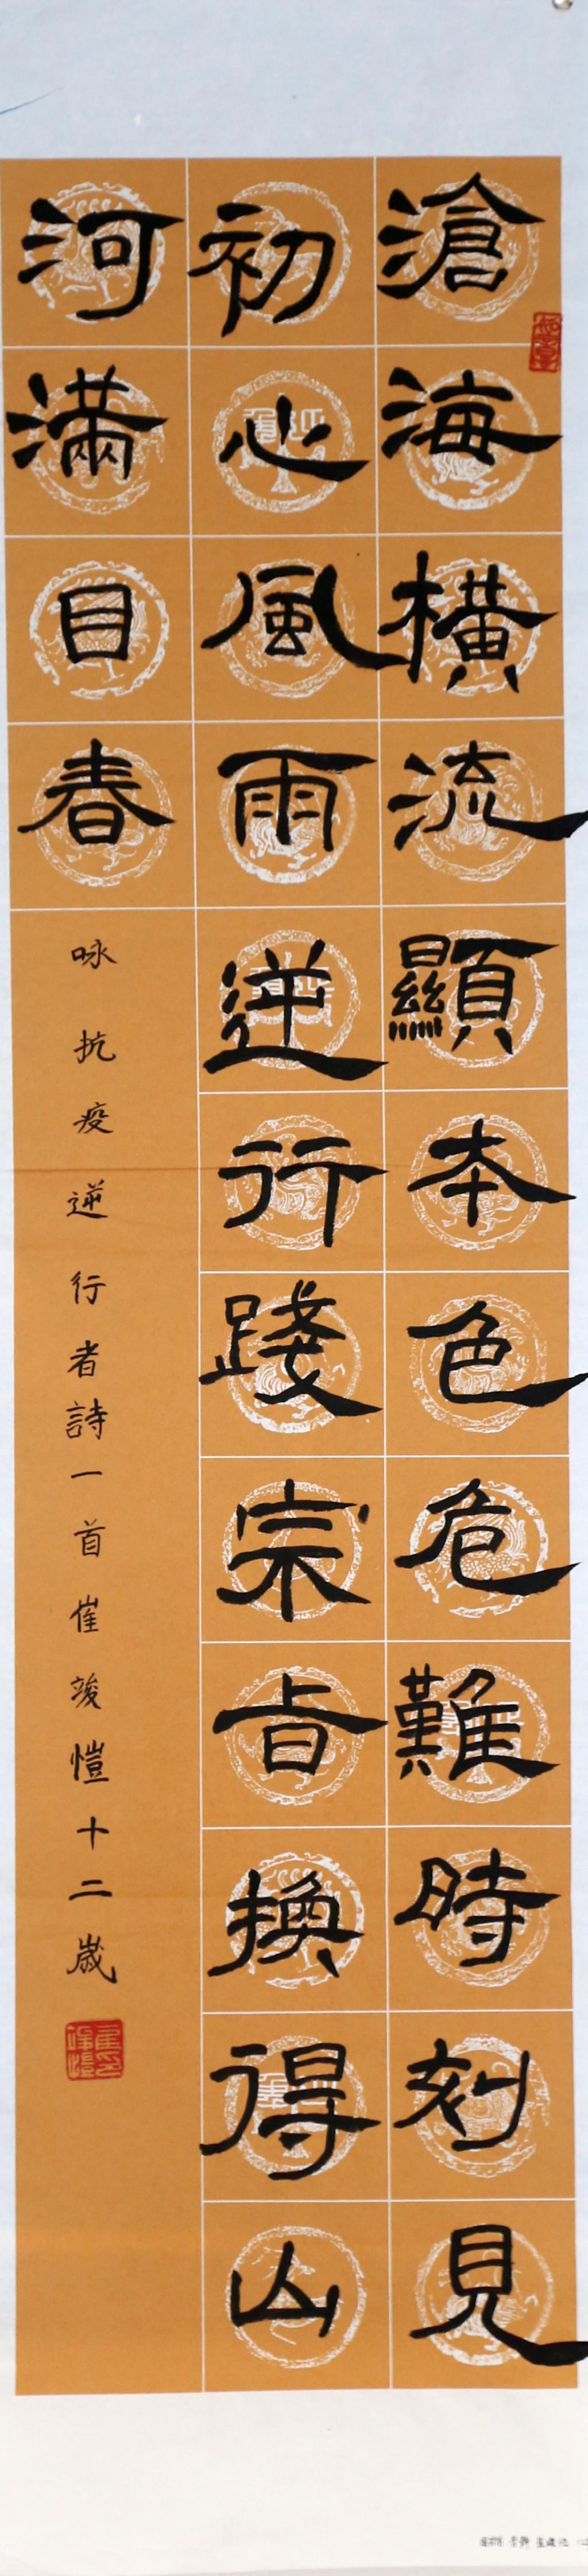 滄海橫流顯本色危難時刻見
初心風雨逆行踐宗旨換得山
河滿目春
咏抗疫逆行者詩一首崔竣愷十二歲